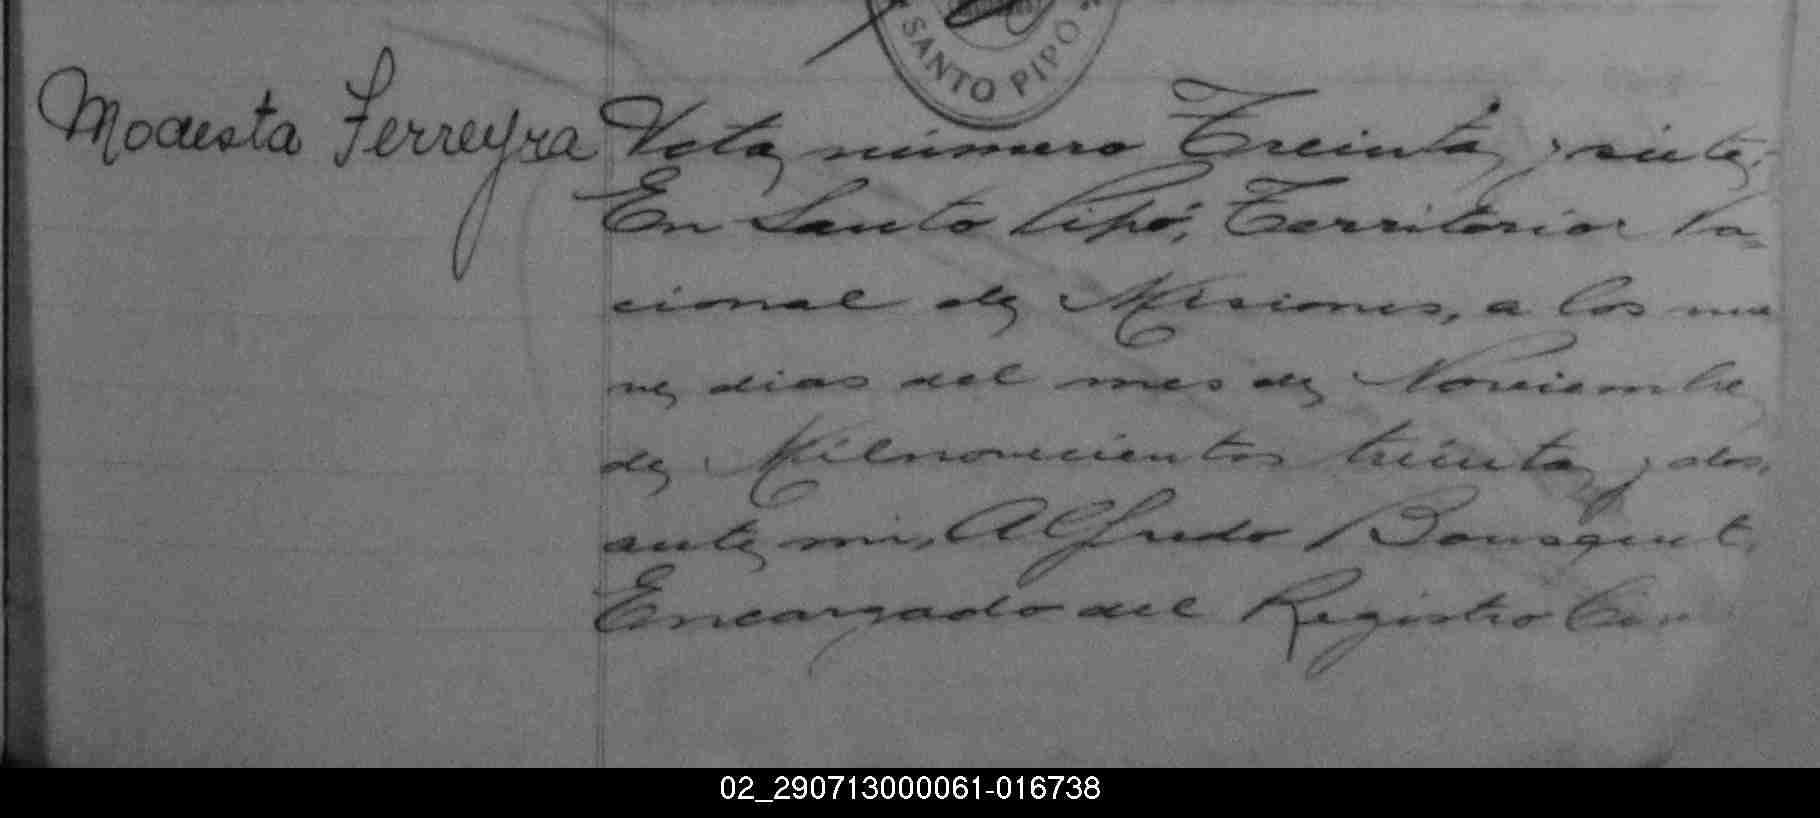 SANTO PIPÓ
Modesta Ferreyra
Acta número Treinta y siete:
En Santo Pipó, Territorio Na-
cional de Misiones, a los nue
ve dias del mes de Noviembre
de Milnovecientos treinta y dos,
ante mi, Alfredo Bousquet,
Encargado del Registro Civ
02_290713000061-016738